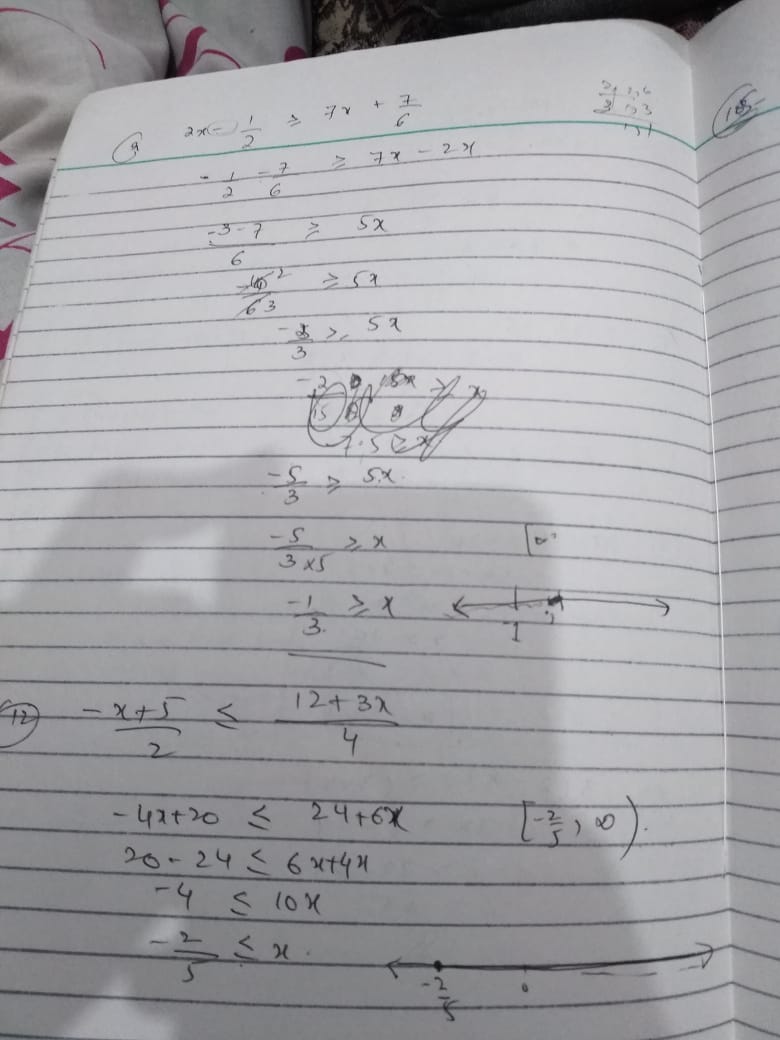 9 2x - 1/2 ≥ 7x + 7/6
-1/2 - 7/6 ≥ 7x - 2x
(-3-7)/6 ≥ 5x
≥ 5x
≥ 5x
-5/3 ≥ 5x
-5/(3×5) ≥ x
-1/3 ≥ x
-1
12 (-x+5)/2 ≤ (12+3x)/4
-4x+20 ≤ 24+6x [-2/5, ∞).
20-24 ≤ 6x+4x
-4 ≤ 10x
-2/5 ≤ x.
-2/5 0